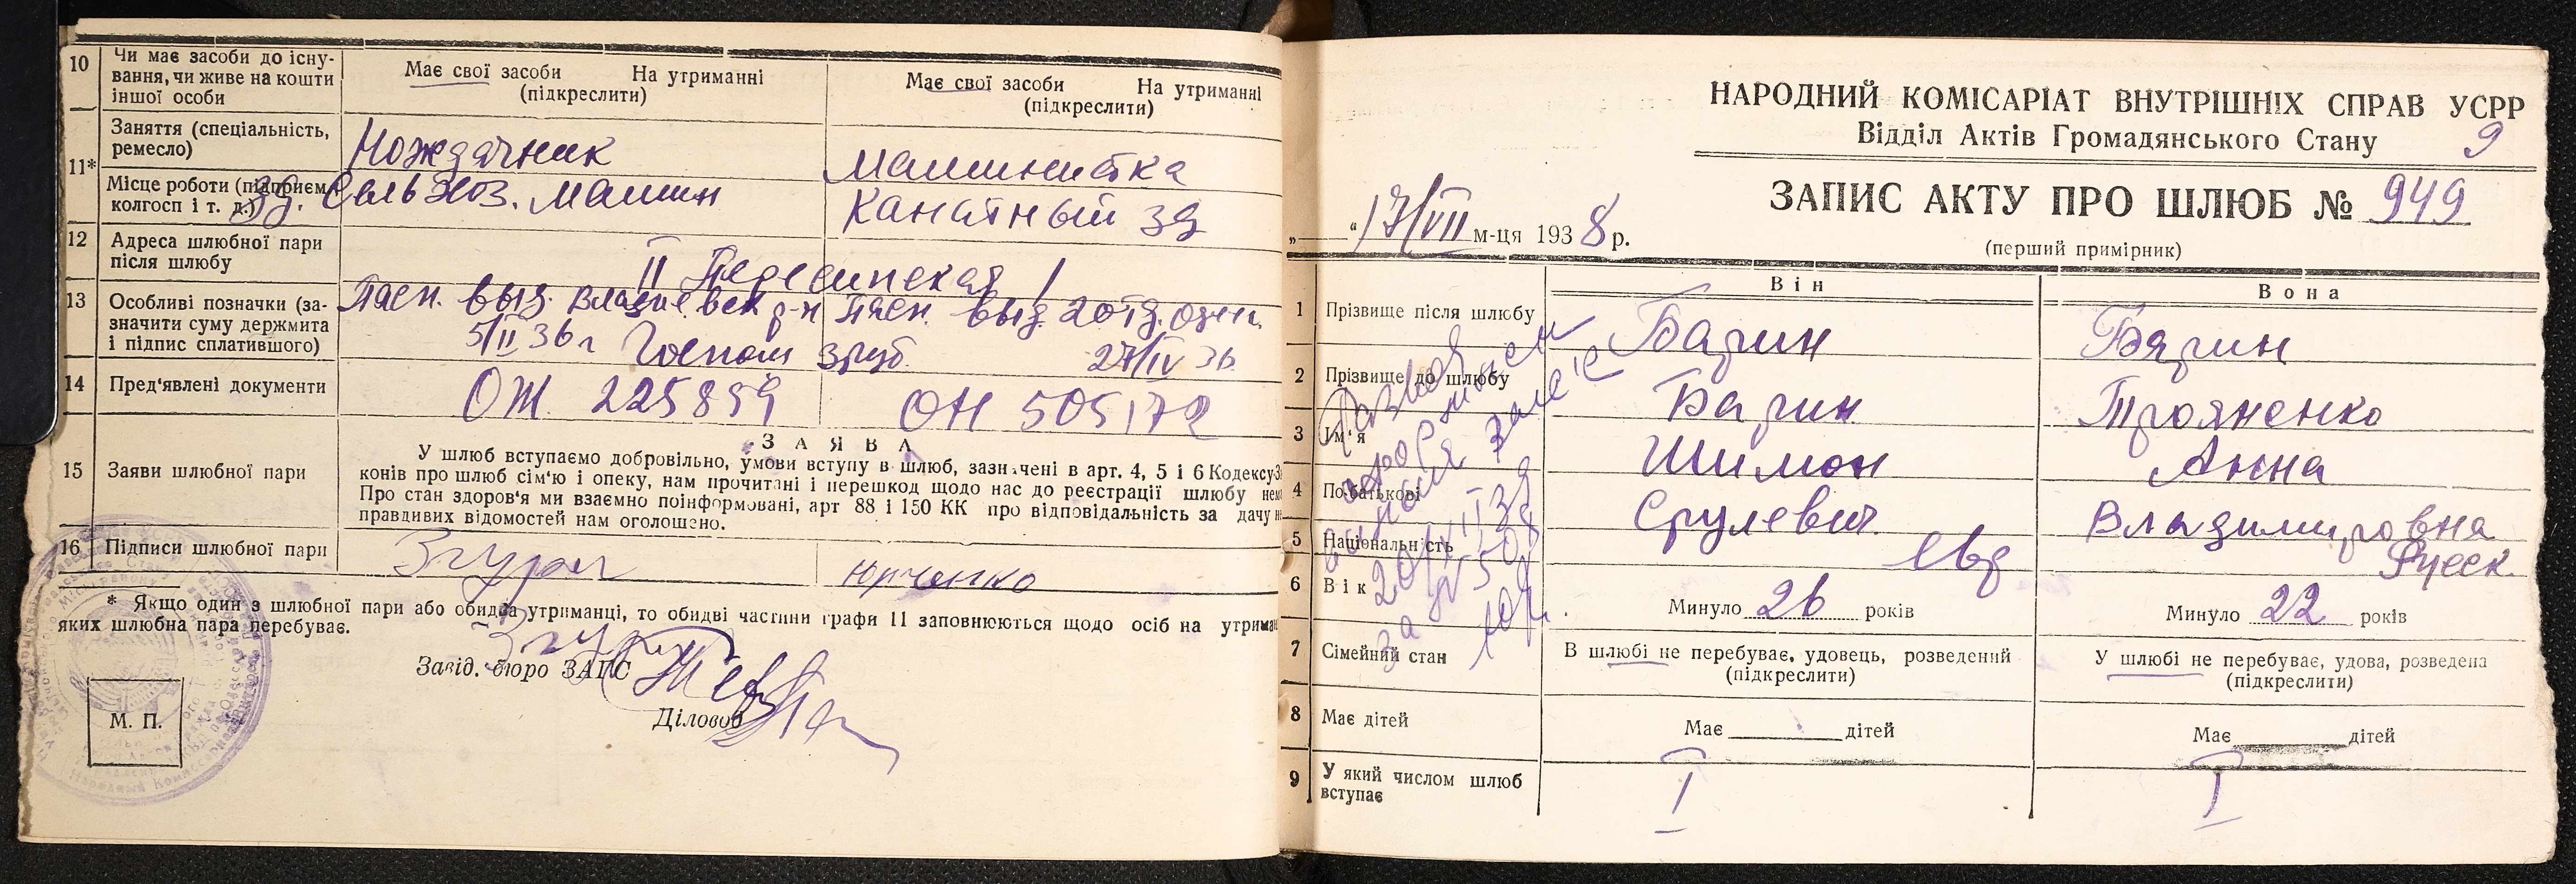 10
Чи має засоби до існу-
вання, чи живе на кошти
іншої особи
Має свої засоби На утриманні
(підкреслити)
Має свої засоби На утриманні
(підкреслити)
11*
Заняття (спеціальність,
ремесло)
Нождачник
Машинистка
Місце роботи (підприєм.
колгосп і т. д.)
Зд. Сельхоз. машин
Канатный зд
12
Адреса шлюбної пари
після шлюбу
II Пересипская 1
13
Особливі позначки (за-
значити суму держмита
і підпис сплатившого)
Пасп. выд.
р-н
5/II 36 г
Пасп. выд. 20тд. Одеч.
27/IV 36
14
Пред'явлені документи
ОЖ 225859
ОН 505172
15
Заяви шлюбної пари
ЗАЯВА
У шлюб вступаємо добровільно, умови вступу в шлюб, зазначені в арт. 4, 5 і 6 Кодексу З
конів про шлюб сім'ю і опеку, нам прочитані і перешкод щодо нас до реєстрації шлюбу нем
Про стан здоров'я ми взаємно поінформовані, арт 88 і 150 КК про відповідальність за дачу н
правдивих відомостей нам оголошено.
16
Підписи шлюбної пари
* Якщо один з шлюбної пари або обидва утриманці, то обидві частини графи 11 заповнюються щодо осіб на утриман
яких шлюбна пара перебуває.
Завід. бюро ЗАГС
Діловод
М. П.
НАРОДНИЙ КОМІСАРІАТ ВНУТРІШНІХ СПРАВ УСРР
Відділ Актів Громадянського Стану
9
ЗАПИС АКТУ ПРО ШЛЮБ № 949
„ “ 17/VII м-ця 1938 р.
(перший примірник)
Він
Вона
1
Прізвище після шлюбу
Барин
Барин
2
Прізвище до шлюбу
Барин
Трояненко
3
Ім'я
Шимон
Анна
4
По-батькові
Срулевич
Владимировна
5
Національність
Евр
Русск.
6
Вік
Минуло 26 років
Минуло 22 років
7
Сімейний стан
В шлюбі не перебуває, удовець, розведений
(підкреслити)
У шлюбі не перебуває, удова, розведена
(підкреслити)
8
Має дітей
Має дітей
Має дітей
9
У який числом шлюб
вступає
I
I